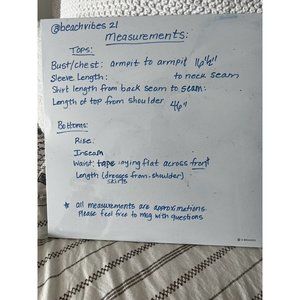 @beachvibes21
Measurements:
Tops:
Bust/chest: armpit to armpit 16 1/2"
Sleeve Length: to neck seam
Shirt length from back seam to seam:
Length of top from shoulder 46"
Bottoms:
Rise:
Inseam
Waist: tape laying flat across front
Length (dresses from shoulder)
skirts
* all measurements are approximations
Please feel free to msg with questions